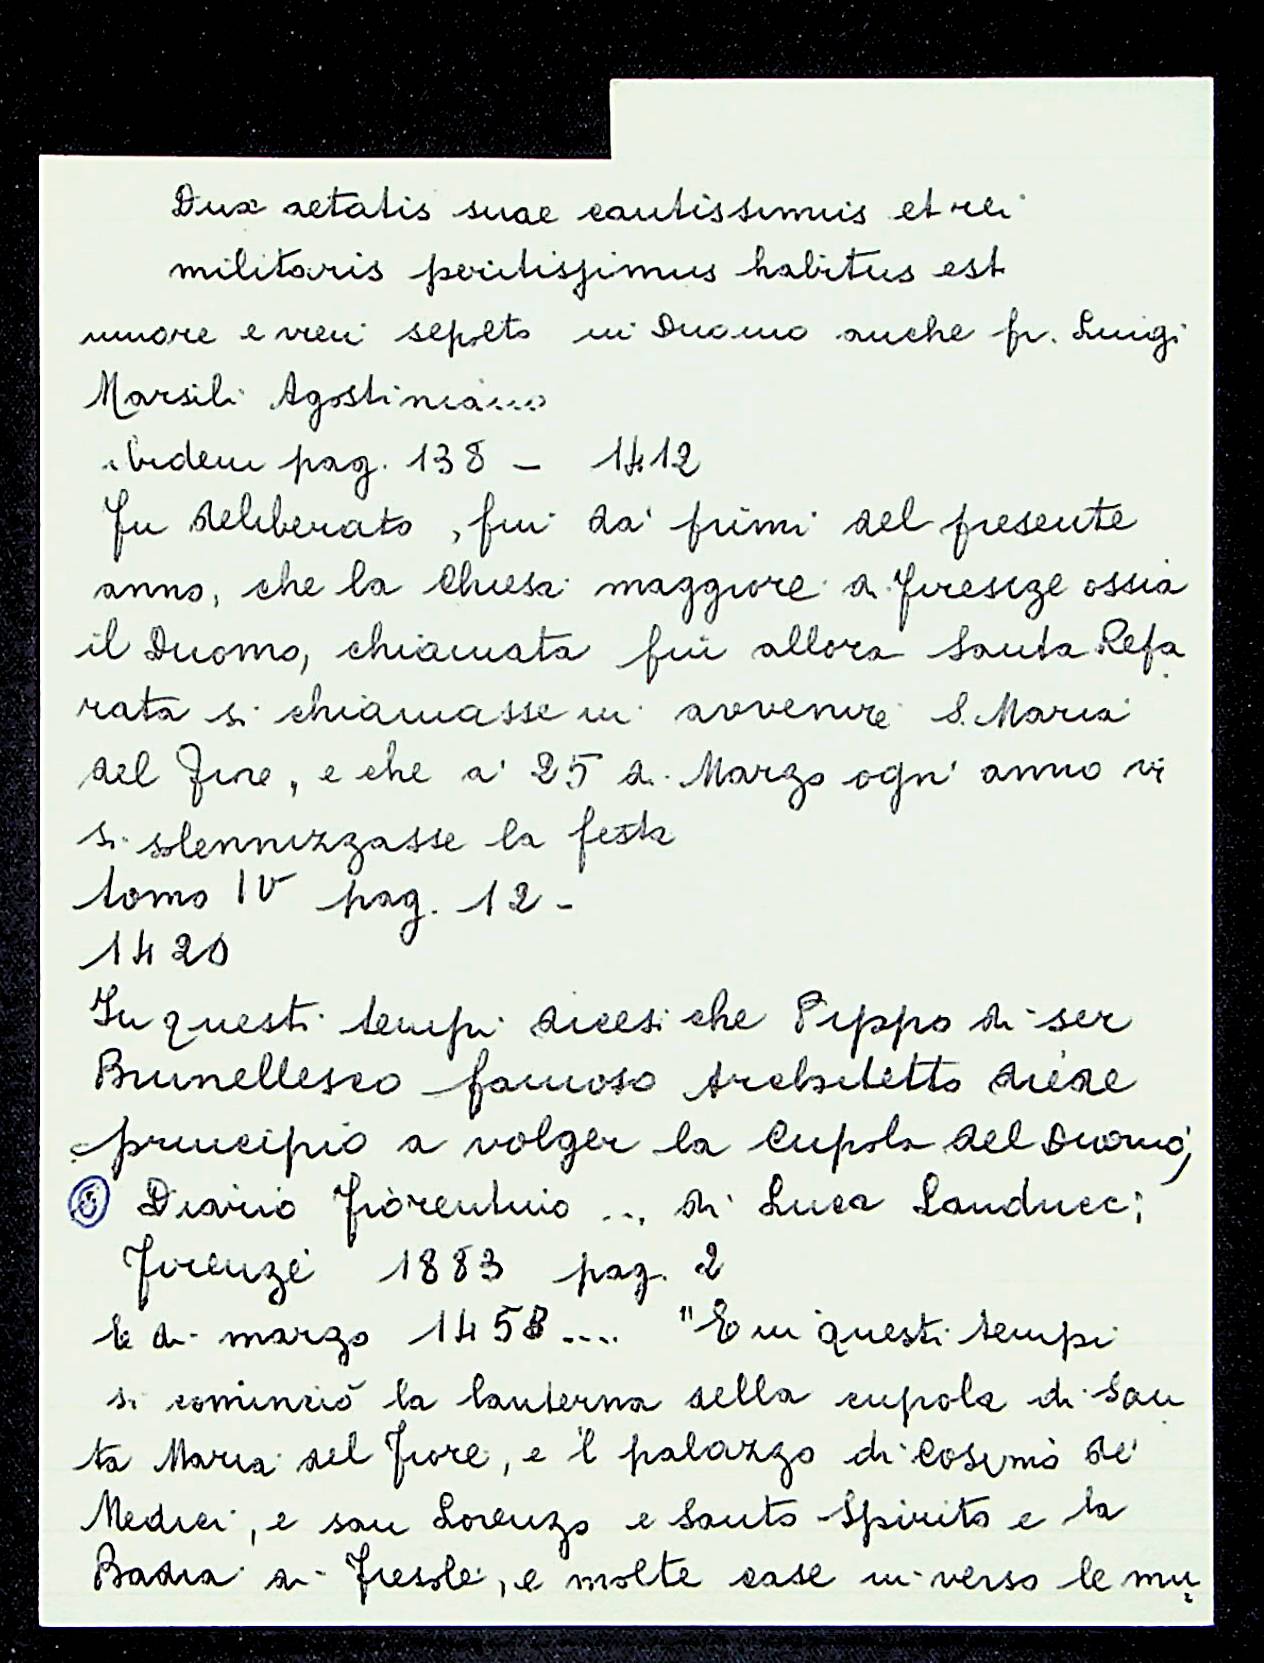 Dux aetatis suae cautissimus et rei
militaris peritissimus habitus est
muore e vien sepolto in Duomo anche fr. Luigi
Marsili Agostiniano
ibidem pag. 138 - 1412
Fu deliberato, fin da' primi del presente
anno, che la Chiesa maggiore di Firenze ossia
il Duomo, chiamata fin allora Santa Repa
rata si chiamasse in avvenire S. Maria
del Fiore, e che a' 25 di Marzo ogni anno vi
si solennizzasse la festa
tomo IV pag. 12 -
1420
In questi tempi dicesi che Pippo di ser
Brunellesco famoso Architetto diede
principio a volger la Cupola del Duomo,
Diario Fiorentino ... di Luca Landucci
Firenze 1883 pag. 2
le di marzo 1458.... "E in questi tempi
si cominciò la lanterna della cupola di San
ta Maria del Fiore, e 'l palazzo di Cosimo de'
Medici, e san Lorenzo e Santo Spirito e la
Badia di Fiesole, e molte case in verso le mu